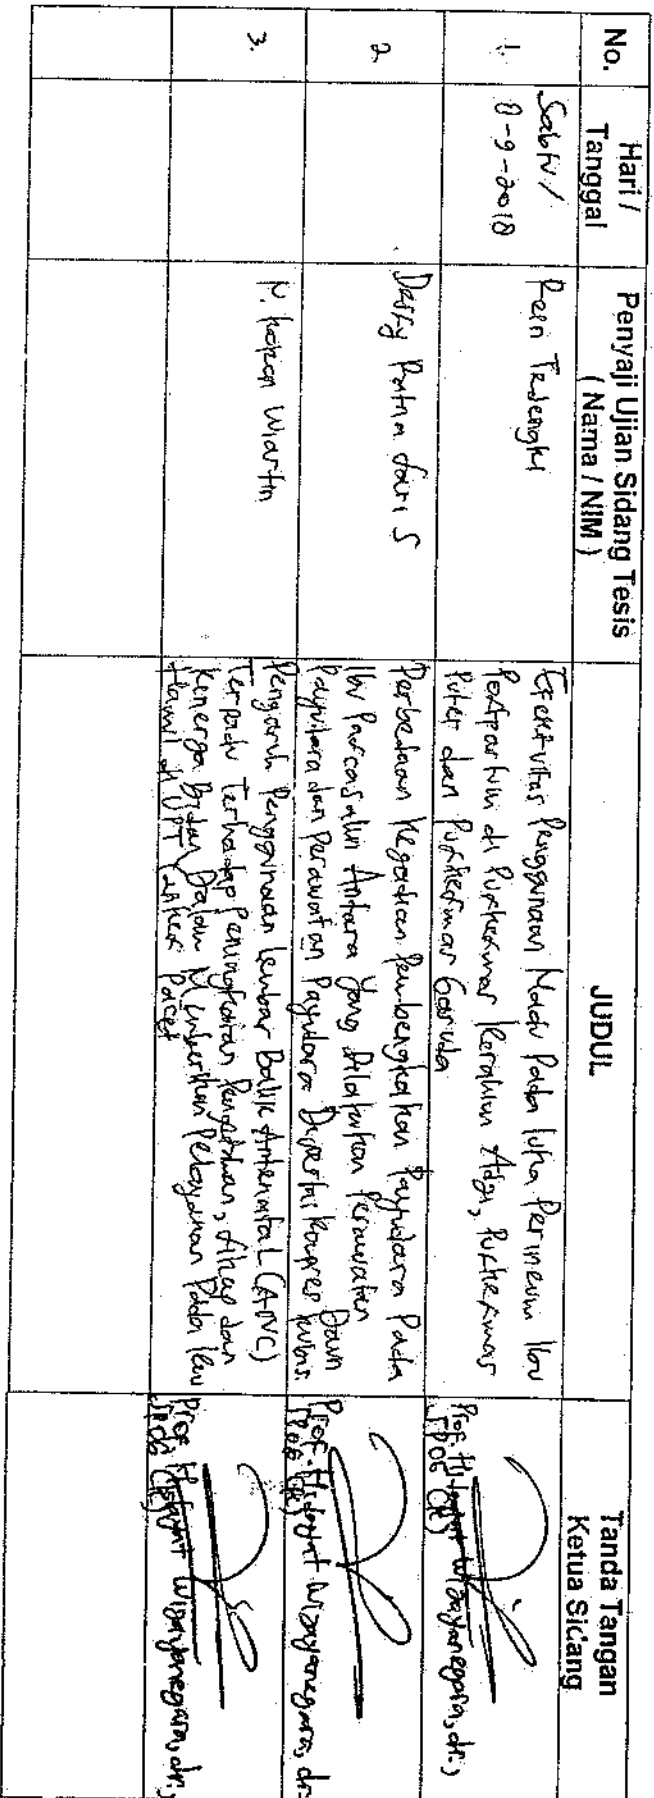 No.
Hari /
Tanggal
Penyaji Ujian Sidang Tesis
( Nama / NIM )
JUDUL
Tanda Tangan
Ketua Sidang
1.
Sabtu /
8-9-2018
Efektivitas Penggunaan Madu Pada luka Perineum Ibu
Postpartum di Puskesmas Ibrahim Adji, Puskesmas
Puter dan Puskesmas Garuda
Prof. Hidayat Wijayanegara, dr.,
SPOG (K)
2
Dessy Ratna Sari S
Perbedaan Kejadian Pembengkakan Payudara Pada
Ibu Pascasalin Antara Yang Dilakukan Perawatan
Payudara dan Perawatan Payudara Disertai Kompres Daun Kubis
Prof. Hidayat Wijayanegara, dr.
SPOG (K)
3.
N. Wiartin
Pengaruh Penggunaan Lembar Balik Antenatal (ANC)
Terpadu Terhadap Peningkatan Pengetahuan, Sikap dan
Kinerja Bidan Dalam Memberikan Pelayanan Pada Ibu
Hamil di UPT Pacet
Prof. Hidayat Wijayanegara, dr.,
SPOG (K)